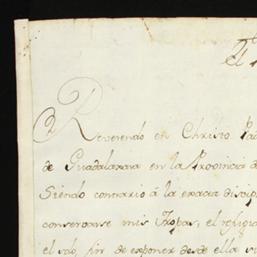 el
Reverendo en Christo Pad
de Guadalaxara en la Provincia d
Siendo contrario á la exacta discip
conservarse mis Tropas, el refugia
el solo fin de exponer desde ella su